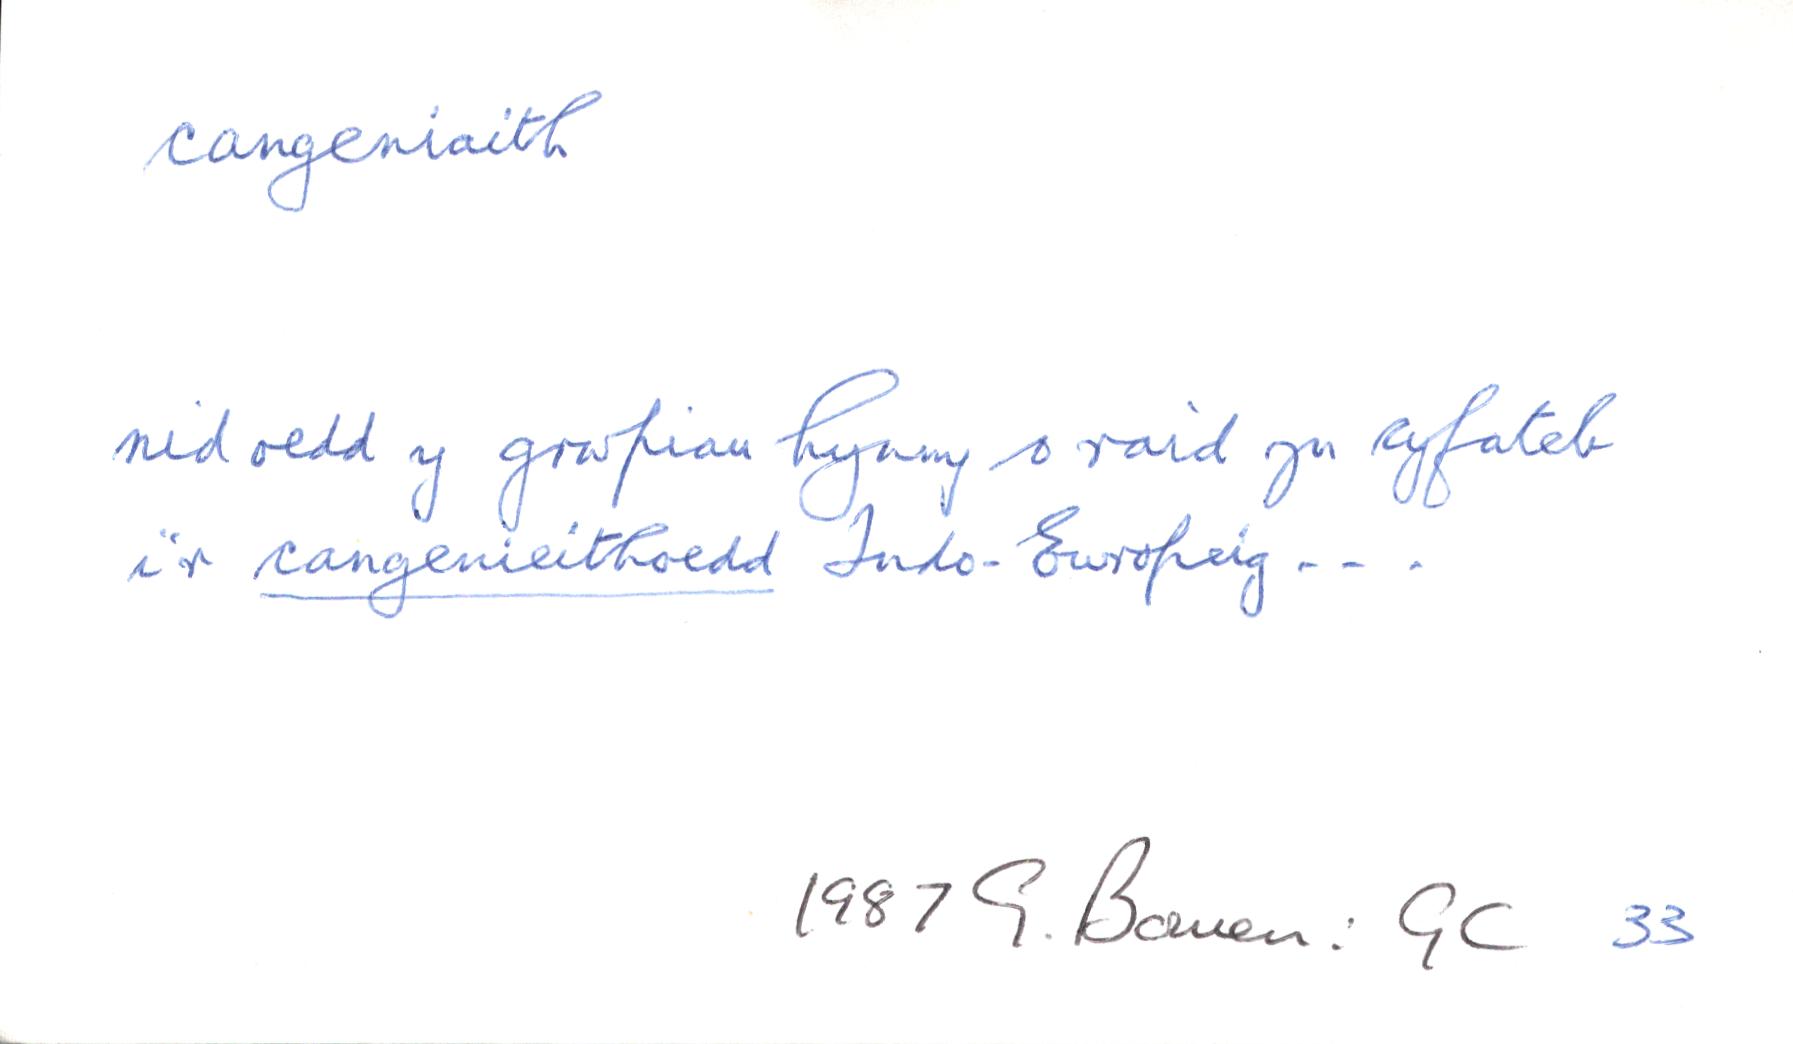 cangeniaith
nid oedd y grwpiau hynny o raid yn cyfateb
i'r cangenieithoedd Indo-Ewropeig - - .
1987 G. Bowen: GC 33